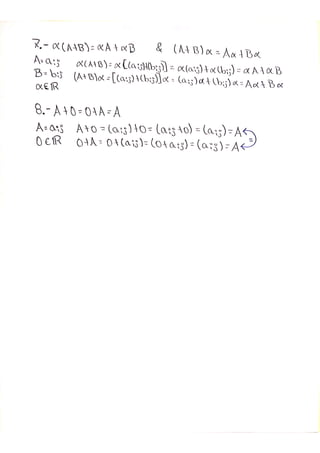 7.- α(A+B)=αA+αB & (A+B)α=Aα+Bα
A=aij α(A+B)=α[(aij)+(bij)]=α(aij)+α(bij)=αA+αB
B=bij (A+B)α=[(aij)+(bij)]α=(aij)α+(bij)α=Aα+Bα
α∈ℝ
8.- A+0=0+A=A
A=aij A+0=(aij)+0=(aij+0)=(aij)=A
0∈ℝ 0+A=0+(aij)=(0+aij)=(aij)=A